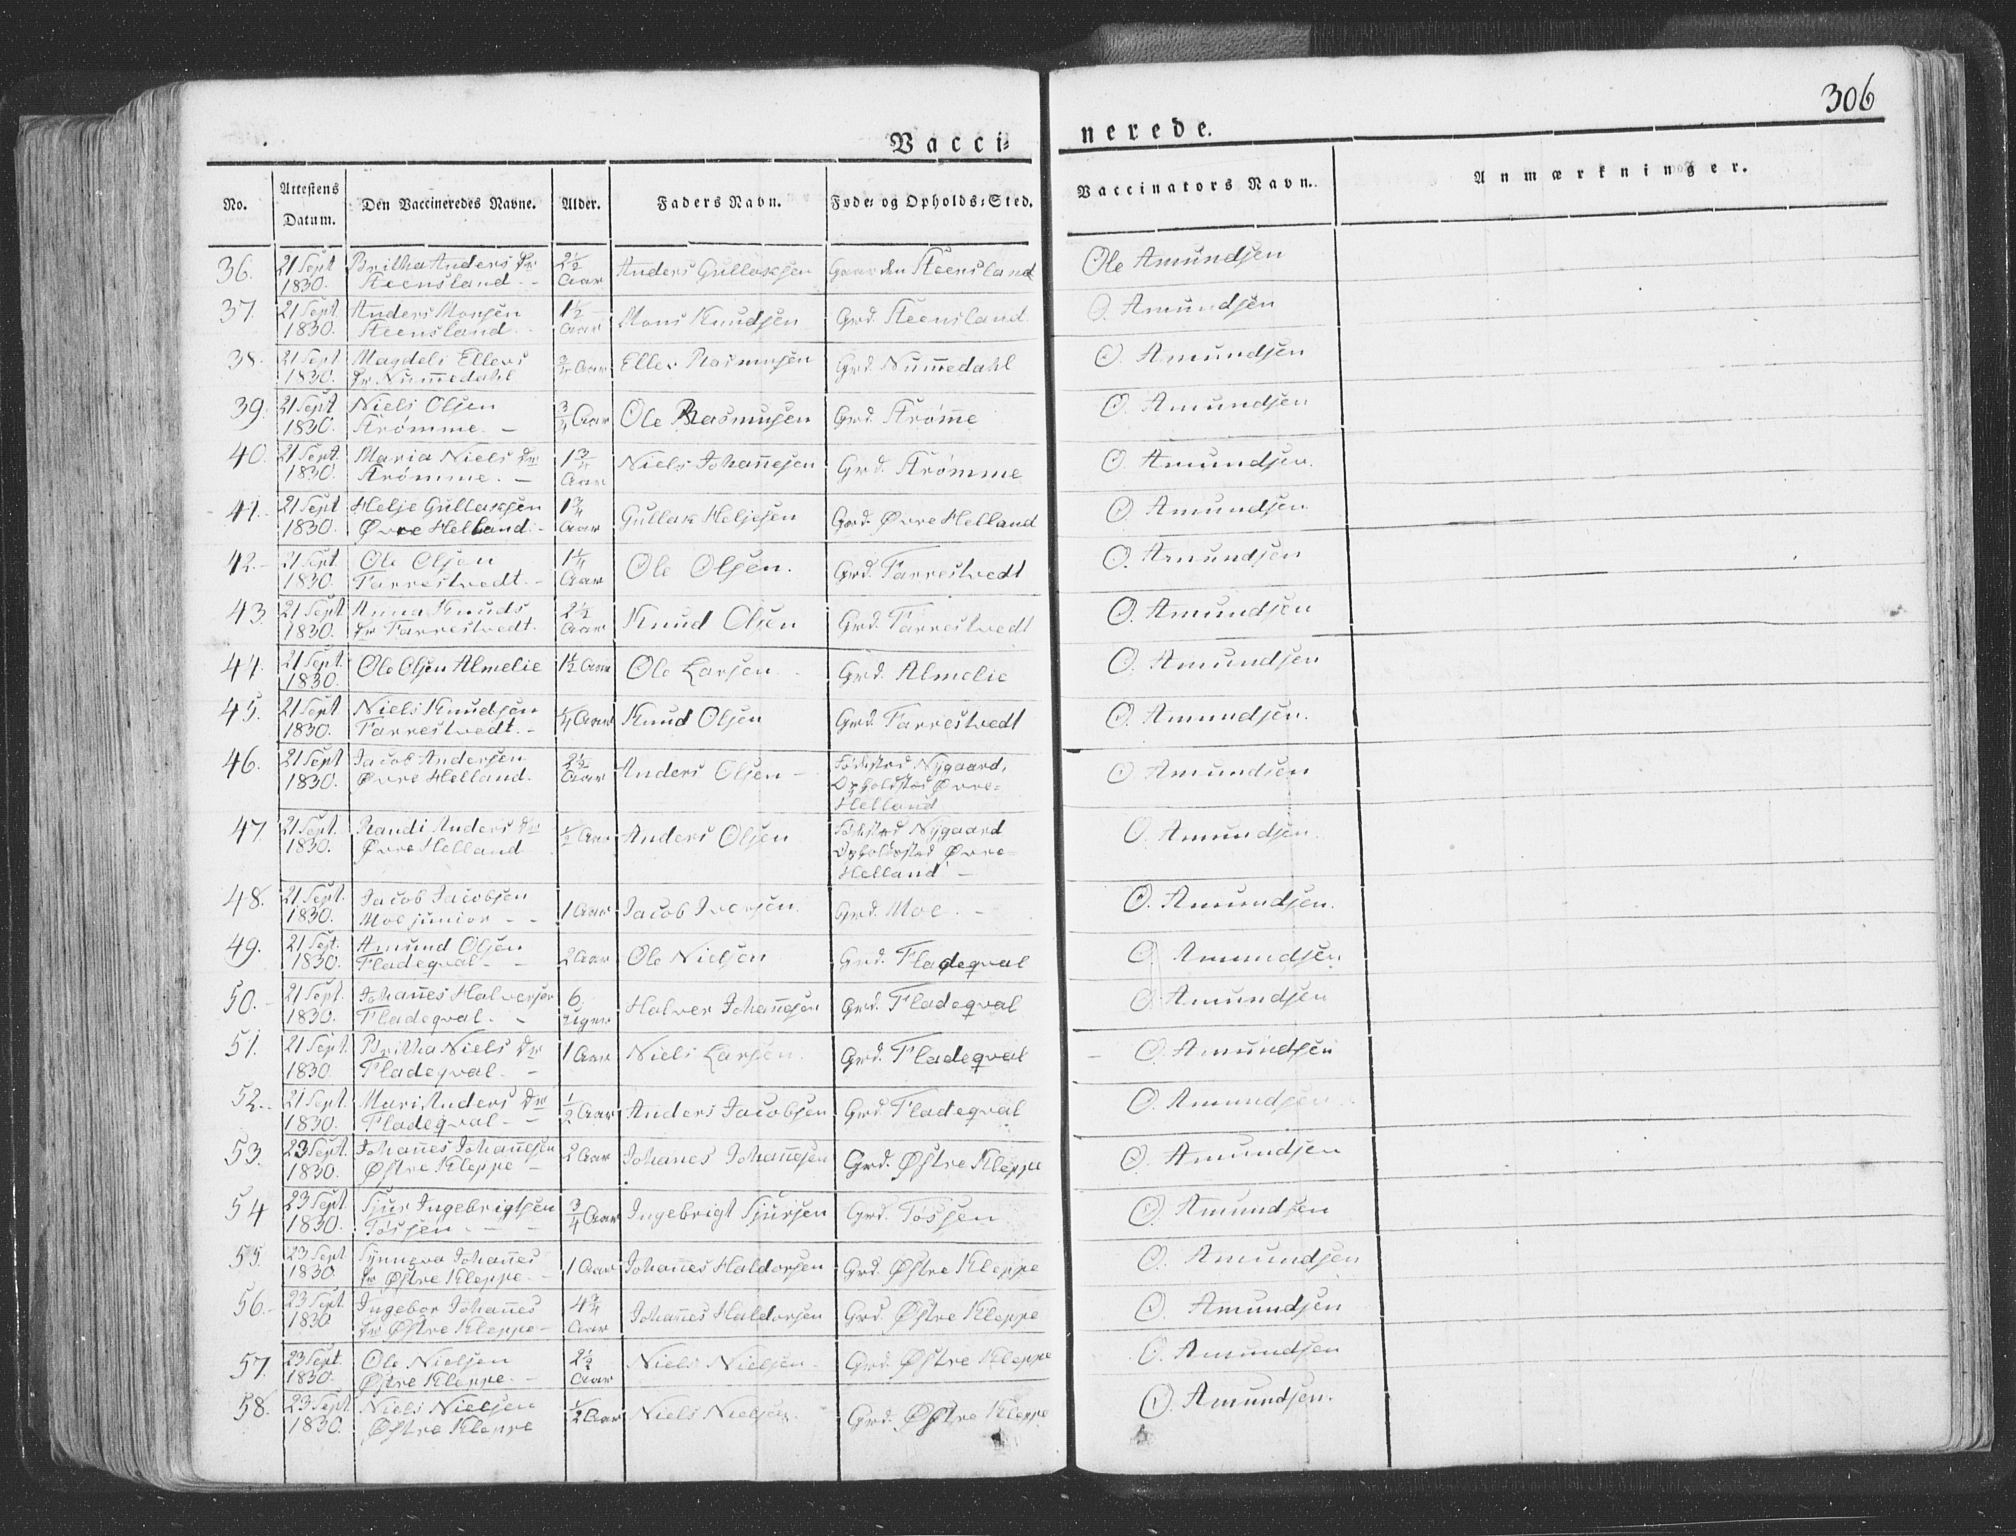 306
Vacci=
nerede.
No.
Attestens Datum.
Den Vaccineredes Navne.
Alder.
Faders Navn.
Føde= og Opholds=Sted.
Vaccinators Navn.
Anmærkninger.
36. 21 Sept 1830. Britha Anders Dr Steensland. 2½ Aar Anders Gullaksen Gaarden Steensland Ole Amundsen
37. 21 Sept 1830. Anders Monsen Steensland. 1½ Aar Mons Knudsen Grd. Steensland O. Amundsen
38. 21 Sept 1830. Magdeli Ellers Dr Nummedahl Aar Eller Rasmusen Grd Nummedahl O. Amundsen
39. 21 Sept 1830. Niels Olsen Strømme. ¾ Aar Ole Rasmusen Grd Strøm̅e O. Amundsen
40. 21 Sept 1830. Maria Niels Dr Strømme. 1¾ Aar Niels Johan̅esen Grd. Strømme O. Amundsen.
41. 21 Sept 1830. Helje Gullaksen Øvre Helland. 1¾ Aar Gullak Heljesen Grd. Øvre Helland O. Amundsen
42. 21 Sept. 1830. Ole Olsen Farrestvedt. 1¼ Aar Ole Olsen. Grd. Farrestvedt O. Amundsen
43. 21 Sept 1830. Anna Knuds Dr Farrestvedt. 2½ Aar Knud Olsen Grd. Farrestvedt O. Amundsen
44. 21 Sept. 1830. Ole Olsen Almelie 1½ Aar Ole Larsen Grd. Almelie O. Amundsen
45. 21 Sept 1830. Niels Knudsen Farrestvedt. ¼ Aar Knud Olsen Grd Farrestvedt O. Amundsen.
46. 21 Sept 1830. Jacob Andersen Øvre Helland. 2½ Aar Anders Olsen Fødested Nygaard, Opholdsted Øvre= Helland O. Amundsen
47. 21 Sept. 1830. Randi Anders Dr Øvre Helland ½ Aar Anders Olsen Fødested Nygaard Opholdsted Øvre= Helland O. Amundsen.
48. 21 Sept. 1830. Jacob Jacobsen Moe junior 1 Aar Jacob Iversen Grd. Moe. O. Amundsen.
49. 21 Sept. 1830. Amund Olsen Fladeqval 2 Aar Ole Nielsen Grd. Fladeqval O. Amundsen
50. 21 Sept. 1830. Johan̅es Halversen Fladeqval. 6 Uger Halver Johan̅esen Grd. Fladeqval O. Amundsen
51. 21 Sept. 1830 Britha Niels Dr Fladeqval. 1 Aar Niels Larsen Grd. Fladeqval O. Amundsen
52. 21 Sept. 1830. Mari Anders Dr Fladeqval. ½ Aar Anders Jacobsen Grd. Fladeqval O. Amundsen
53. 23 Sept. 1830. Johan̅es Johan̅esen Østre Kleppe 2 Aar Johanes Johan̅esen Grd. Østre Kleppe O. Amundsen
54 23 Sept. 1830. Sjur Ingebrigtsen Tøssen. ¾ Aar Ingebrigt Sjursen Grd. Tøssen O. Amundsen
55. 23 Sept 1830. Synneva Johan̅es Dr Østre Kleppe. 1 Aar Johan̅es Haldorsen Grd. Østre Kleppe O. Amundsen
56. 23 Sept. 1830 Ingebor Johan̅es Dr Østre Kleppe 4¾ Aar Johan̅es Haldorsen Grd. Østre Kleppe O. Amundsen
57. 23 Sept. 1830. Ole Nielsen Østre Kleppe. 2½ Aar Niels Nielsen Grd. Østre Kleppe O. Amundsen
58. 23 Sept. 1830. Niels Nielsen Østre Kleppe ½ Aar Niels Nielsen. Grd. Østre Kleppe O. Amundsen.